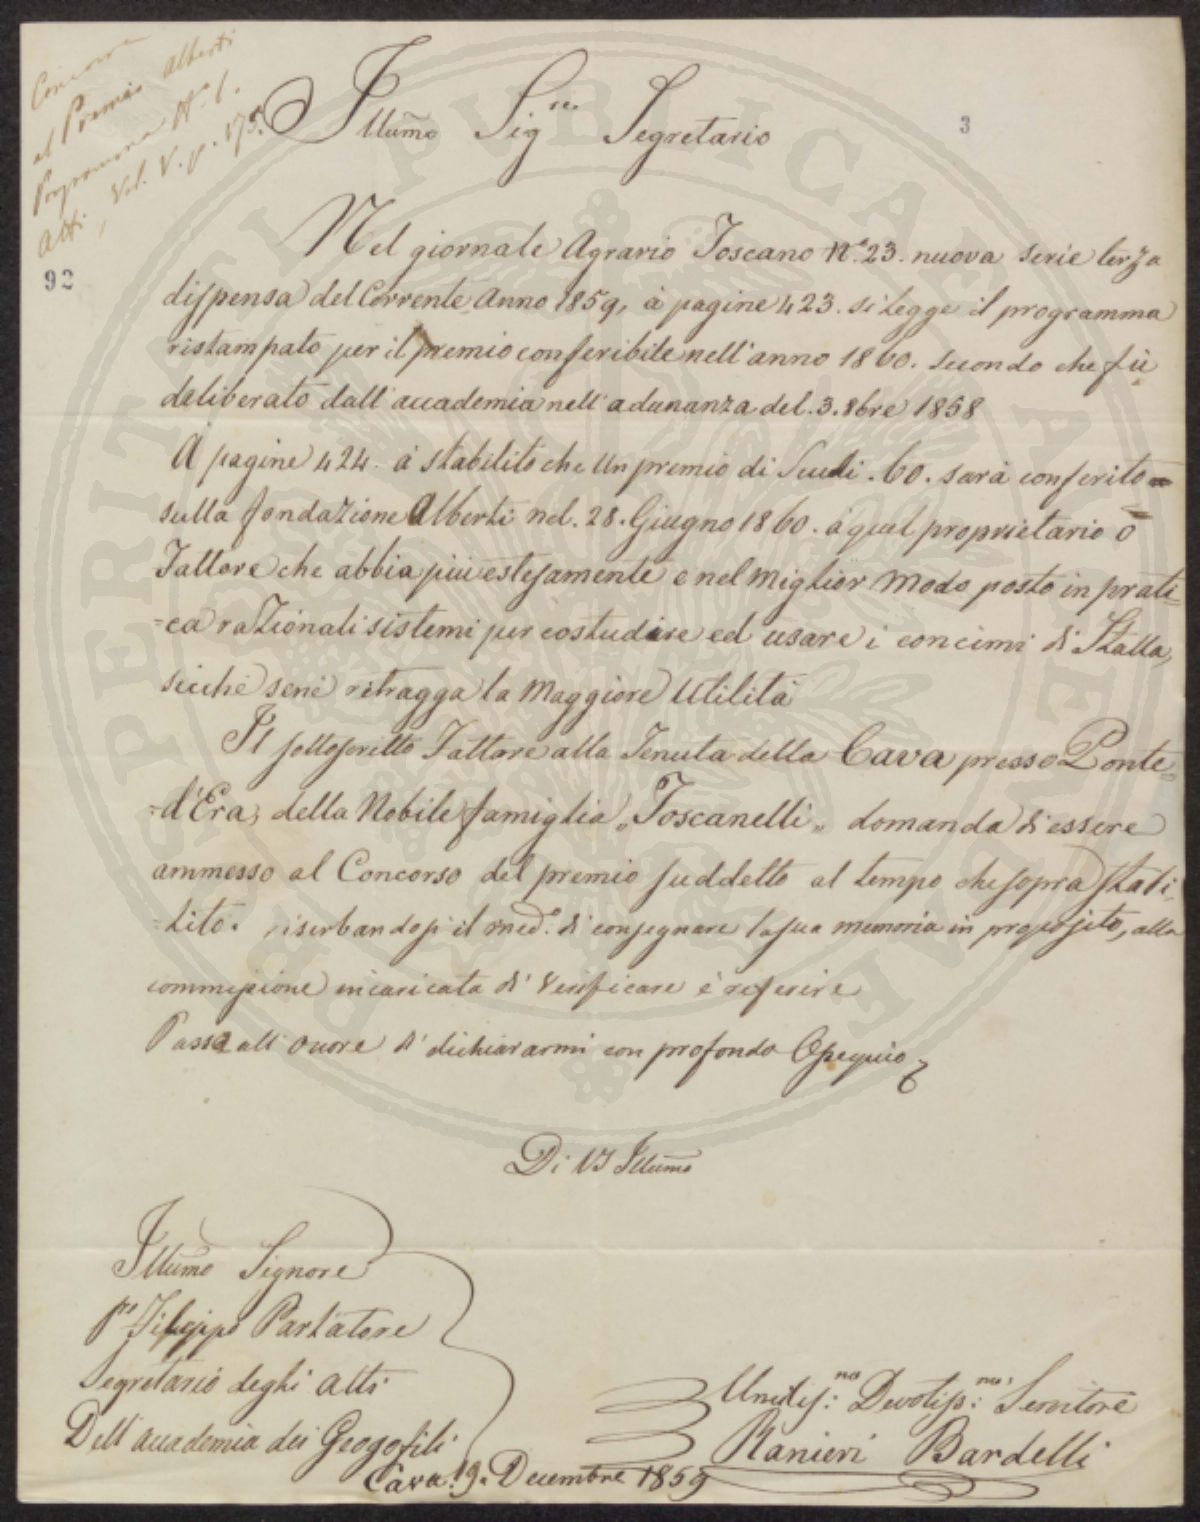 Concorre
al Premio Alberti
Programma N. 6.
Atti, Vol. V. p. 175.
Illumo Sigre Segretario
3
92
Nel giornale Agrario Toscano No. 23. nuova serie terza
dispensa del Corrente Anno 1859, à pagine 423. si legge il programma
ristampato per il premio conferibile nell'anno 1860. secondo che fù
deliberato dall'accademia nell'adunanza del. 3. 8bre 1858
A pagine 424. à stabilito che Un premio di Scudi. 60. sarà conferito
sulla fondazione Alberti nel. 28. Giugno 1860. à quel proprietario ò
Fattore che abbia più estesamente e nel miglior modo posto in prati=
=ca razionali sistemi per costudire ed usare i concimi di Stalla,
sicché sene ritragga la Maggiore Utilità
Il sottoscritto Fattore alla Tenuta della Cava presso Ponte=
=d'Era, della Nobile famiglia „Toscanelli„ domanda di essere
ammesso al Concorso del premio suddetto al tempo che sopra stabi=
=lito. riserbandosi il med.o di consegnare la sua memoria in proposito, alla
commissione incaricata di Verificare è referire
Passo all'onore di dichiararmi con profondo Ossequio
Di VS Illuma
Illumo Signore
Pre Filippo Parlatore
Segretario degli Atti
Dell'accademia dei Geogofili
Umiliss:mo Devotiss:mo Servitore
Ranieri Bardelli
Cava. 19. Decembre 1859
PERITATI PUBLICAE